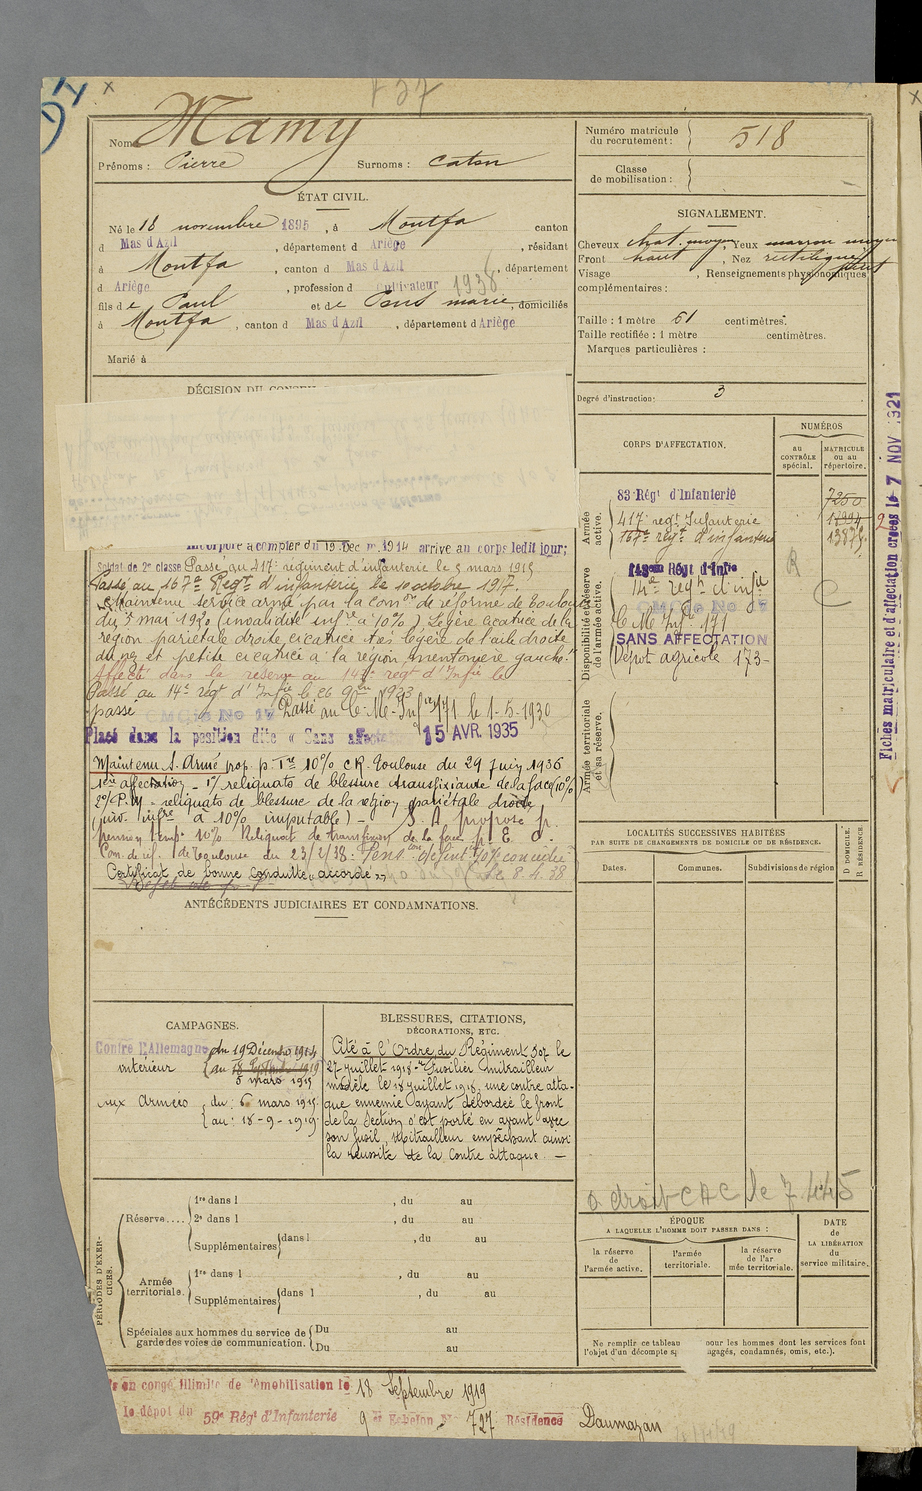 127
Nom Mamy
Prénoms : Pierre Surnoms :
Numéro matricule du recrutement : 518
Classe de mobilisation :
ÉTAT CIVIL.
Né le 18 novembre 1895, à Montfa canton
d Mas d'Azil, département d Ariège, résidant
à Montfa, canton d Mas d'Azil, département
d Ariège, profession d cultivateur 1938
fils de Paul et de Pons marie, domiciliés
à Montfa, canton d Mas d'Azil, département d Ariège
Marié à
SIGNALEMENT.
Cheveux chat. moyen, Yeux marron moyen
Front haut, Nez rectiligne
Visage , Renseignements physionomiques
complémentaires :
Taille : 1 mètre 61 centimètres.
Taille rectifiée : 1 mètre centimètres.
Marques particulières :
Degré d'instruction : 3
DÉCISION DU
Incorporé à compter du 19 Déc 1914 arrivé au corps ledit jour;
Soldat de 2e classe Passé au 417e régiment d'infanterie le 5 mars 1915
Passé au 167e Régt d'infanterie le 10 octobre 1917.
Maintenu service armé par la con. de réforme de Toulouse
du 5 mai 1920 (invalidité infre à 10%) Légère cicatrice de la
région pariétale droite, cicatrice très légère de l'aile droite
du nez et petite cicatrice à la région mentonnière gauche.
Affecté dans la réserve au 14e regt d'Infie le
Passé au 14e régt d'Infie le 26 1923
passé CMOta No 17 Passé au C.M. Infie 171 le 1-5-1930
Placé dans la position dite « Sans affectation 15 AVR. 1935
Maintenu S. Armé prop. p. Tre 10% CR. Toulouse du 29 Juin 1936
1ère affection - 1°/ reliquats de blessure transfixiante de la face (10%)
2°/ P.M - reliquats de blessure de la région pariétale droite
(inv. infre à 10% imputable) - S. A. proposé p.
pension temp. 10% Reliquat de transfixion de la face p. E. O.
Com. de réf. de Toulouse du 23/2/38.
Certificat de bonne conduite « accordé »
le 8.4.38
CORPS D'AFFECTATION.
NUMÉROS
au CONTRÔLE spécial.
MATRICULE ou au répertoire.
Armée active.
83 Régt d'Infanterie 7250
417e regt Infanterie
167e régt d'infanterie
Disponibilité et réserve de l'armée active.
14e regt d'infie
CMOta No 17
C.M. Infie 171
SANS AFFECTATION
Dépôt agricole 173
Armée territoriale et sa réserve.
Fiches matriculaire et d'affectation créées le 7 NOV 1921
LOCALITÉS SUCCESSIVES HABITÉES
PAR SUITE DE CHANGEMENTS DE DOMICILE OU DE RÉSIDENCE.
Dates. Communes. Subdivisions de région
D DOMICILE.
R RÉSIDENCE.
ANTÉCÉDENTS JUDICIAIRES ET CONDAMNATIONS.
CAMPAGNES.
Contre l'Allemagne du 19 Décembre 1914
intérieur au
5 mars 1915
Aux Armées du : 6 mars 1915
au : 18-9-1919
BLESSURES, CITATIONS,
DÉCORATIONS, ETC.
Cité à l'Ordre du Régiment 307 le
27 juillet 1918 - Fusilier mitrailleur
modèle le 18 juillet 1918, une contre atta-
que ennemie ayant débordée le front
de la Section s'est porté en avant avec
son fusil mitrailleur empêchant ainsi
la réussite de la Contre attaque. -
a droit CAC le 7.4.45
PÉRIODES D'EXERCICES.
Réserve....
1re dans l , du au
2e dans l , du au
Supplémentaires dans l , du au
Armée territoriale.
1re dans l , du au
Supplémentaires dans l , du au
Spéciales aux hommes du service de garde des voies de communication.
Du au
Du au
ÉPOQUE
A LAQUELLE L'HOMME DOIT PASSER DANS :
la réserve de l'armée active.
l'armée territoriale.
la réserve de l'armée territoriale.
DATE de LA LIBÉRATION du service militaire.
Ne remplir ce tableau pour les hommes dont les services font
l'objet d'un décompte agagés, condamnés, omis, etc.).
en congé illimité de démobilisation le 18 Septembre 1919
le dépôt du 59e Régt d'Infanterie 9e Echelon No 727 Résidence Daumazan